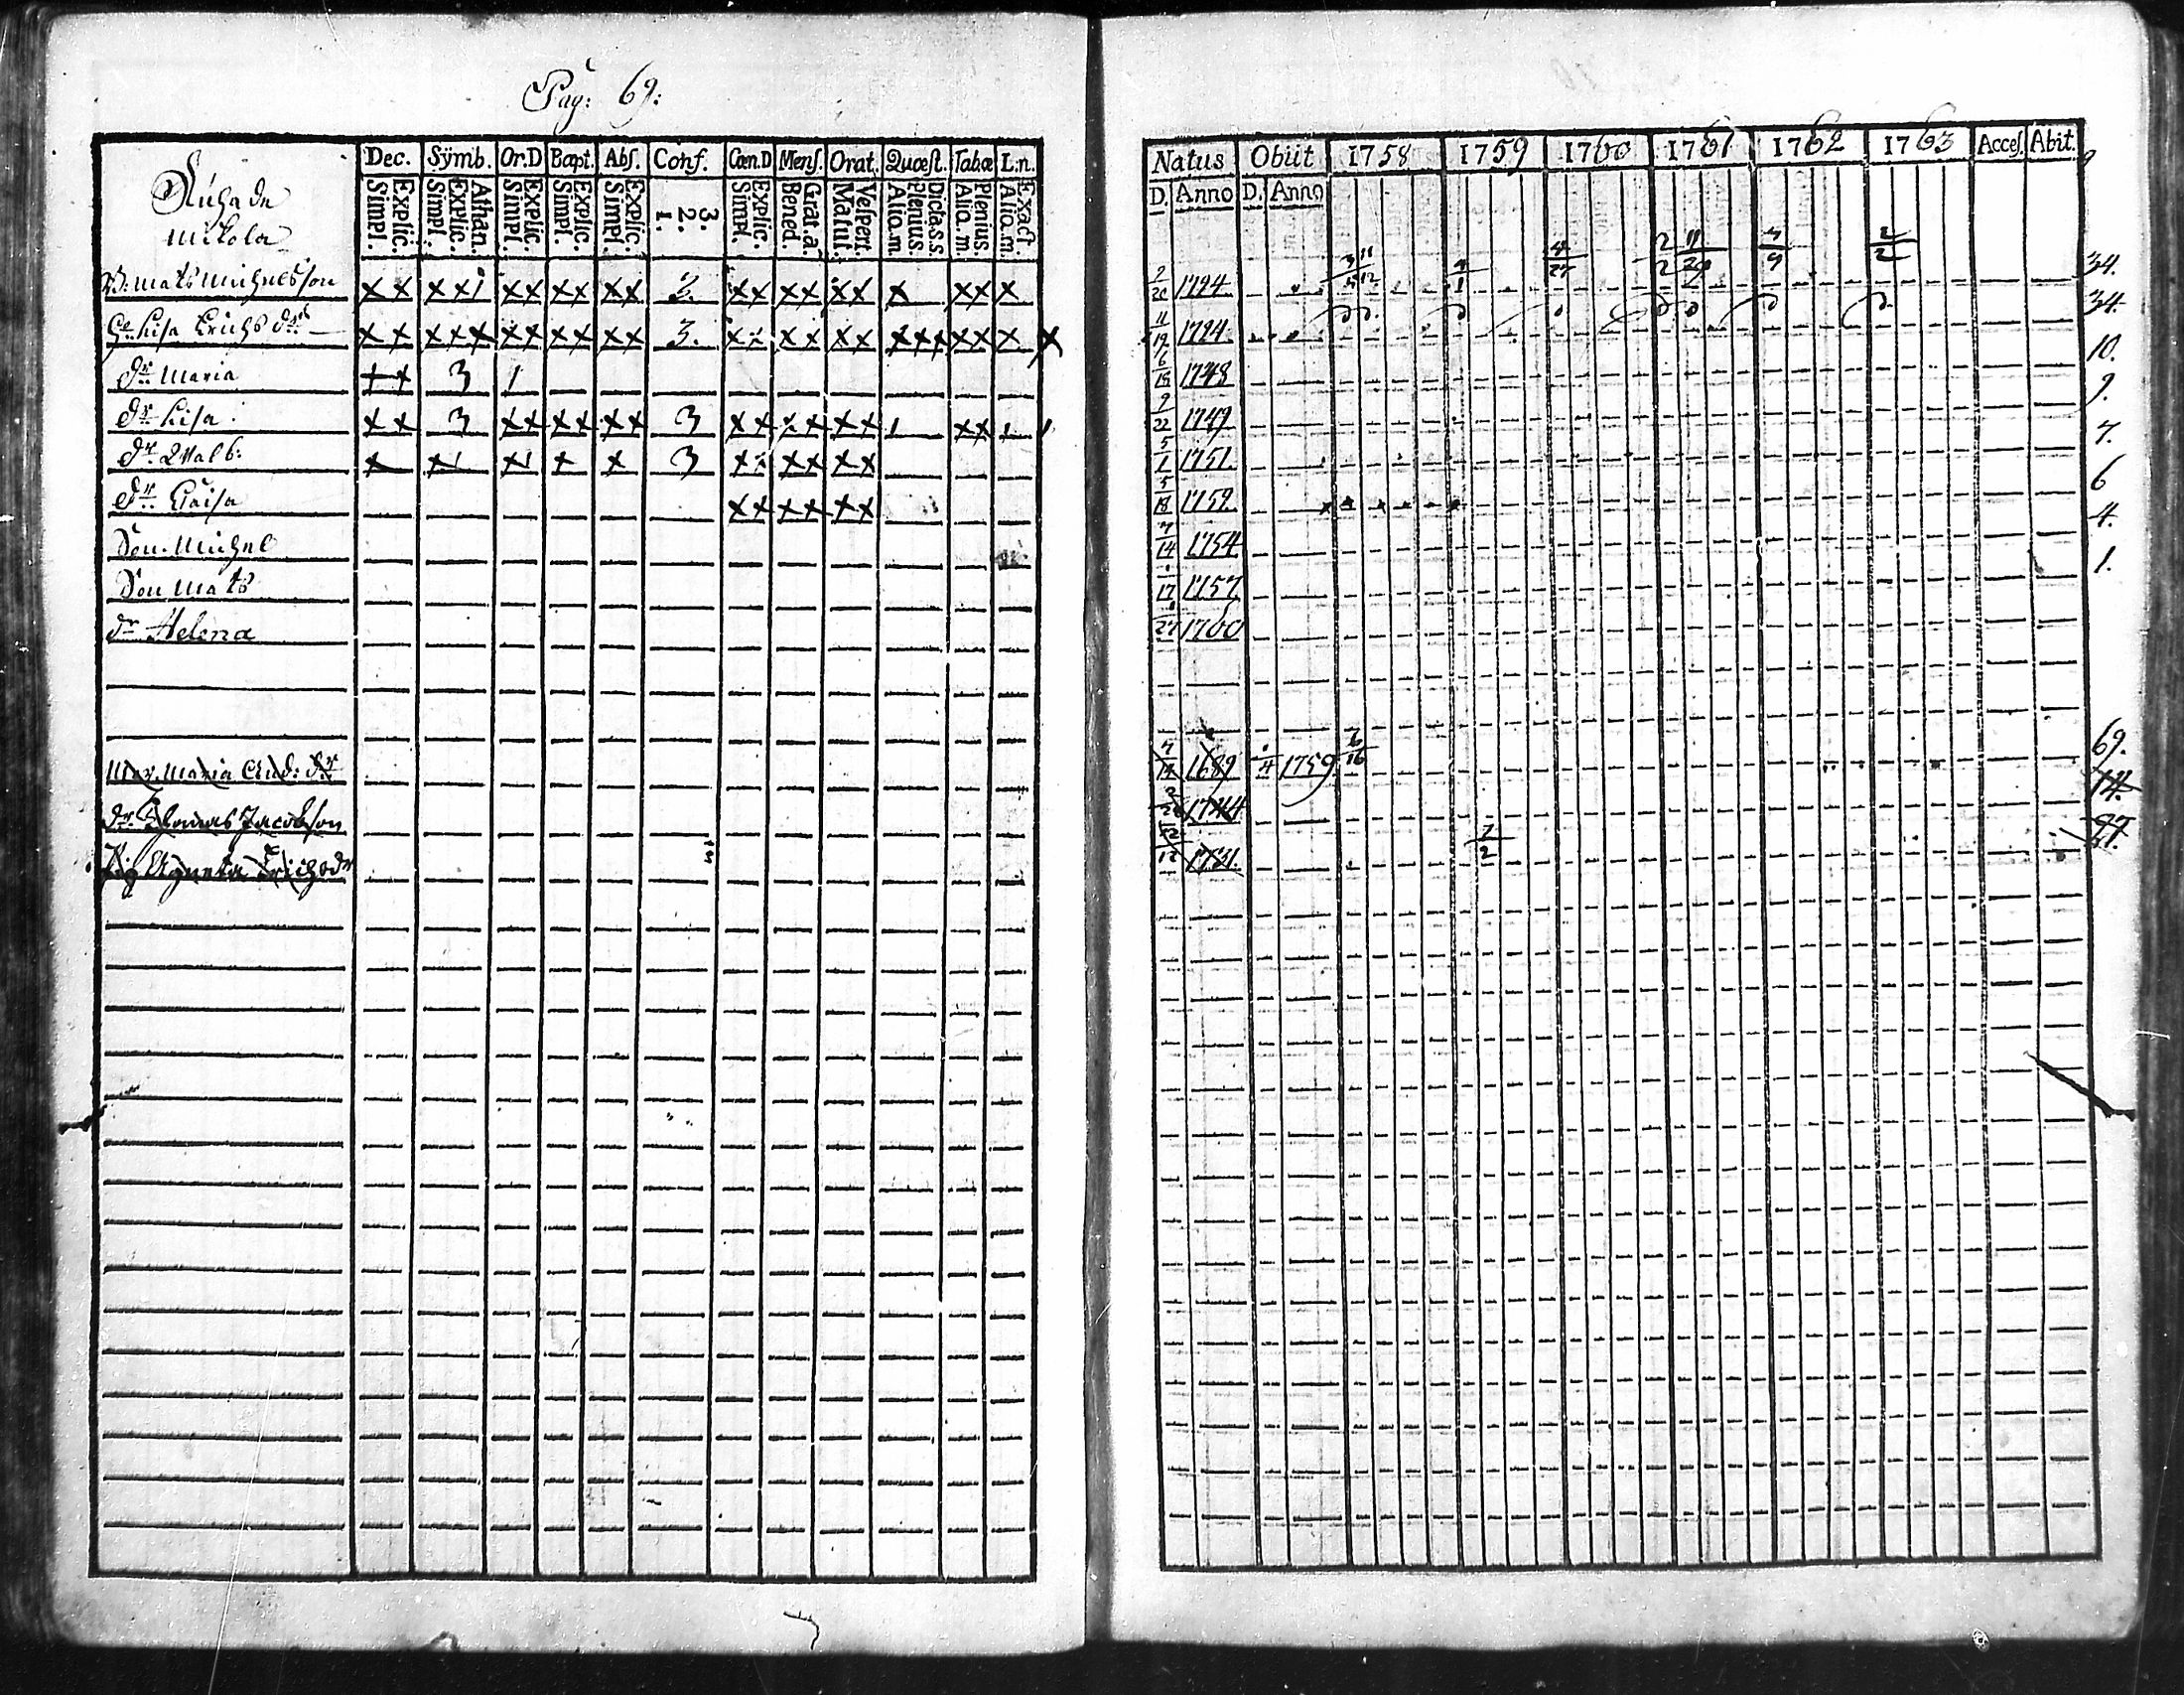 Pag: 69:
Dec. Sÿmb. Or.D Bapt. Abſ. Conf. Cœn.D Menſ. Orat. Quæſt. Tabæ L.n.
Explic. Simpl. Athan. Explic. Simpl. Explic. Simpl. Explic. Simpl. Explic. Simpl. 3. 2. 1. Explic. Simpl. Grat.a. Bened. Veſpert. Matut. Dicta.s.s. Plenius. Aliq.m. Plenius. Aliq.m. Exact. Aliq.m.
Mikola
B: Mats Michelsſon x x x x 1 x x x x x x 3. x x x x x x x x x x
Liſa Erichs dr x x x x x x x x x x x 3. x x x x x x x x x x x x x
dr Maria x x 3 1
dr Liſa x x 3 x x x x x x 3 x x x x x x 1 x x 1 1
dr Walb: x x 1 x 1 x x 3 x x x x x x
dr Caiſa x x x x x x
Son Michel
Son Mats
dr Helena
Maria And: dr
Thomas Jacobſon
Pig Agneta Erichsdr
Natus Obiit 1758 1759 1760 1761 1762 1763 Acceſ. Abit.
D. Anno D. Anno
2/20 1724 4/1 4/27 2/2 11/29 4/9 2/2 34.
11/19 1724 34.
6/18 1748 10.
9/22 1749 9.
5/1 1751. 7.
5/18 1752. 6
7/14 1754 4.
17 1757 1.
27 1760
1689 4 1759 69.
1744 14.
12 1731. 7/2 27.